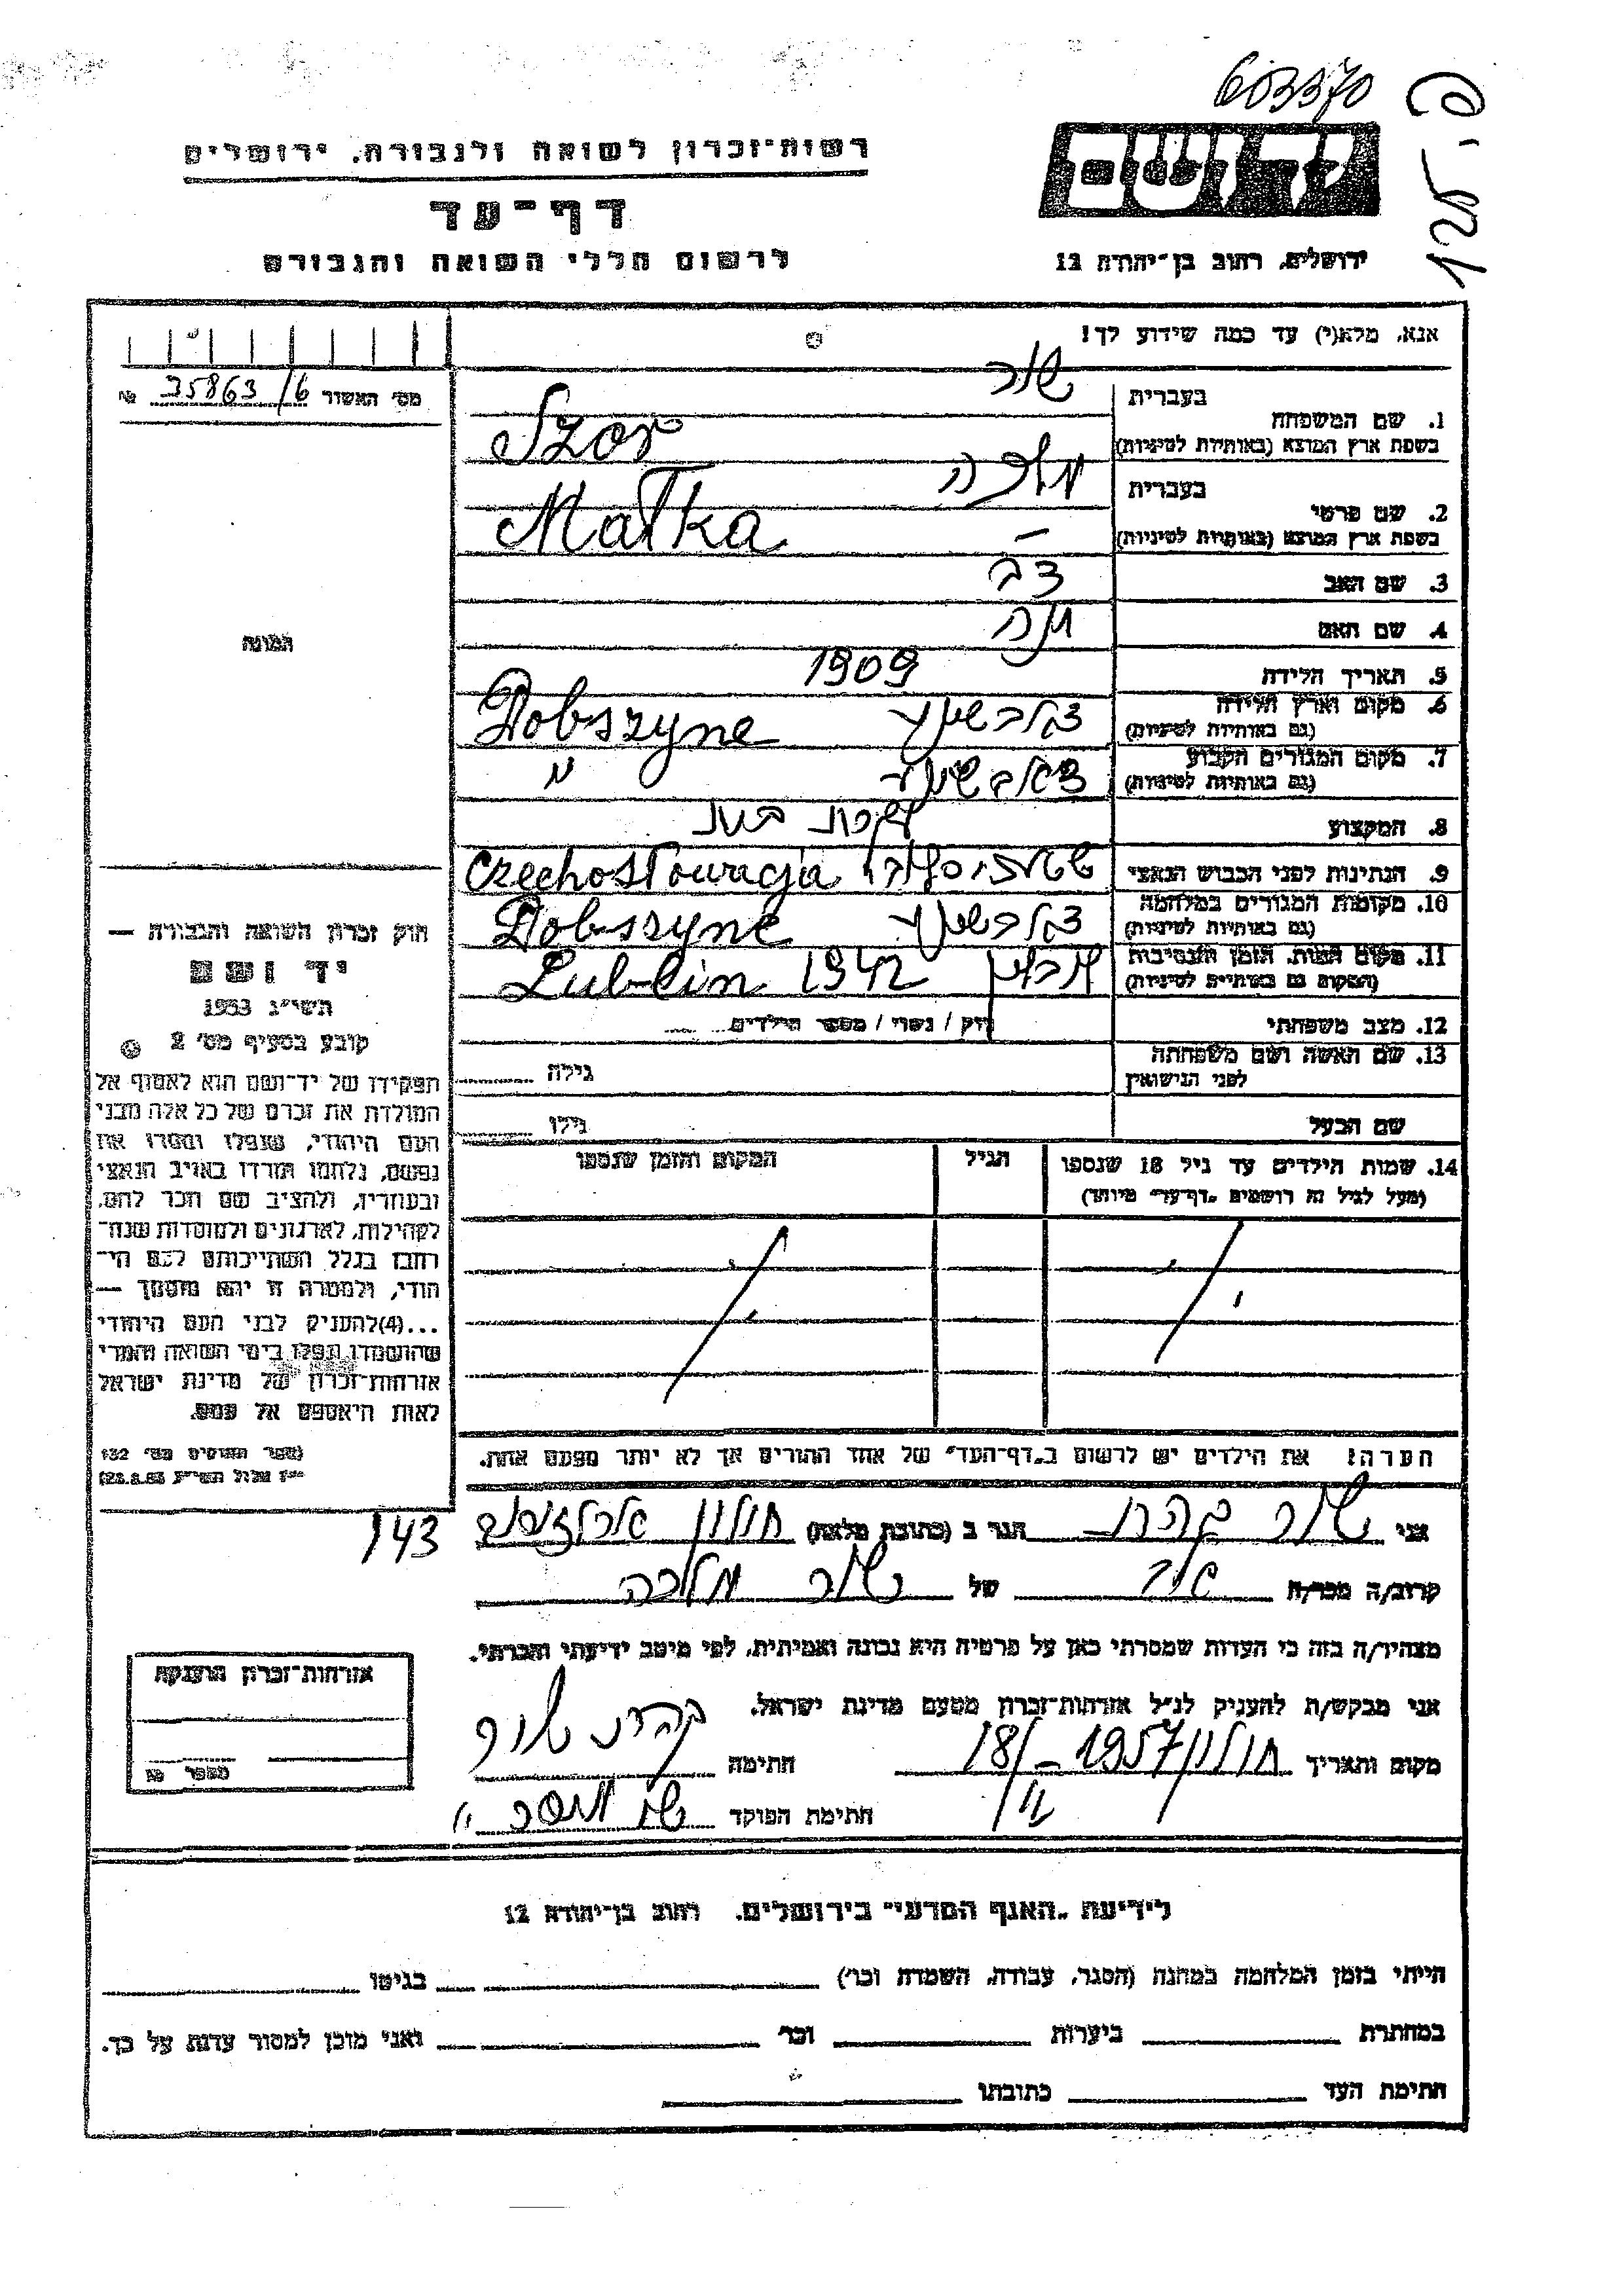 603370
125 .פ
רשות־זכרון לשואה ולגבורה, ירושלים
דף־עד
לרשום חללי השואה והגבורה
יד ושם
ירושלים, רחוב בן־יהודה 12
אנא, מלא(י) עד כמה שידוע לך!
מס׳ האשור 35863/6 №
1. שם המשפחה
בעברית שור
בשפת ארץ המוצא (באותיות לטיניות) Szor
2. שם פרטי
בעברית מלכה
בשפת ארץ המוצא (באותיות לטיניות) Małka
3. שם האב צבי
4. שם האם
5. תאריך הלידה 1909
6. מקום וארץ הלידה
(גם באותיות לטיניות) Dobszyne
7. מקום המגורים הקבוע
(גם באותיות לטיניות) "
8. המקצוע
9. הנתינות לפני הכבוש הנאצי Czechosłowacja
10. מקומות המגורים במלחמה
(גם באותיות לטיניות) Dobszyne
11. מקום המות, הזמן והנסיבות
(המקום גם באותיות לטיניות) לובלין Lublin 1942
12. מצב משפחתי רוק / נשוי / מספר הילדים
13. שם האשה ושם משפחתה
לפני הנישואין גילה
שם הבעל גילו
14. שמות הילדים עד גיל 18 שנספו הגיל המקום והזמן שנספו
(מעל לגיל זה רושמים „דף־עד״ מיוחד)
הערה! את הילדים יש לרשום ב„דף־העד״ של אחד ההורים אך לא יותר מפעם אחת.
התמונה
חוק זכרון השואה והגבורה —
יד ושם
תשי״ג 1953
קובע בסעיף מס׳ 2
תפקידו של יד־ושם הוא לאסוף אל
המולדת את זכרם של כל אלה מבני
העם היהודי, שנפלו ומסרו את
נפשם, נלחמו ומרדו באויב הנאצי
ובעוזריו, ולהציב שם וזכר להם,
לקהילות, לארגונים ולמוסדות שנח־
רבו בגלל השתייכותם לעם הי־
הודי, ולמטרה זו יהא מוסמך —
...(4)להעניק לבני העם היהודי
שהושמדו ונפלו בימי השואה והמרי
אזרחות־זכרון של מדינת ישראל
לאות היאספם אל עמם.
(ספר החוקים מס׳ 132
י״ז אלול תשי״ג 28.8.53)
143
אני שור הגר ב (כתובת מלאה) חולון
קרוב/ה מכר/ה של שור מלכה
מצהיר/ה בזה כי העדות שמסרתי כאן על פרטיה היא נכונה ואמיתית, לפי מיטב ידיעתי והכרתי.
אני מבקש/ת להעניק לנ״ל אזרחות־זכרון מטעם מדינת ישראל.
מקום ותאריך חולון 1957 18/ חתימה שור
חתימת הפוקד
אזרחות־זכרון הוענקה
מספר №
לידיעת „האגף המדעי״ בירושלים, רחוב בן־יהודה 12
הייתי בזמן המלחמה במחנה (הסגר, עבודה, השמדה וכר׳) בגיטו
במחתרת ביערות וכר׳ ואני מוכן למסור עדות על כך.
חתימת העד כתובתו